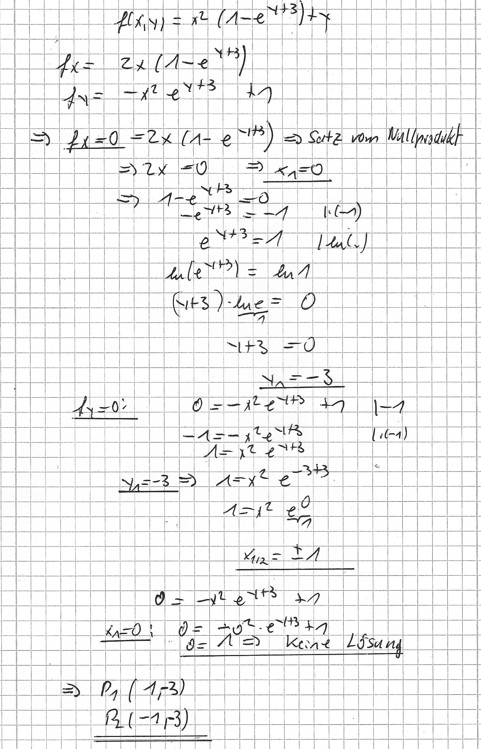 f(x,y) = x² (1-e^{y+3})+y
fx = 2x (1-e^{y+3})
fy = -x² e^{y+3} +1
=> fx=0 = 2x (1-e^{y+3}) => Satz vom Nullprodukt
=> 2x = 0 => x₁=0
=> 1-e^{y+3} = 0
-e^{y+3} = -1 |·(-1)
e^{y+3} = 1 |ln(..)
ln(e^{y+3}) = ln 1
(y+3)·ln e = 0
1
y+3 = 0
y₁ = -3
fy=0: 0 = -x² e^{y+3} +1 |-1
-1 = -x² e^{y+3} |·(-1)
1 = x² e^{y+3}
y₁=-3 => 1 = x² e^{-3+3}
1 = x² e^0
1
x_{1/2} = ±1
0 = -x² e^{y+3} +1
x₁=0: 0 = -0²·e^{y+3}+1
0 = 1 => keine Lösung
=> P₁ (1,-3)
P₂ (-1,-3)